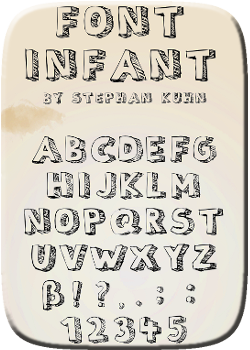 FONT
INFANT
BY STEPHAN KUHN
ABCDEFG
HIJKLM
NOPQRST
UVWXYZ
ß!?,.:;
12345